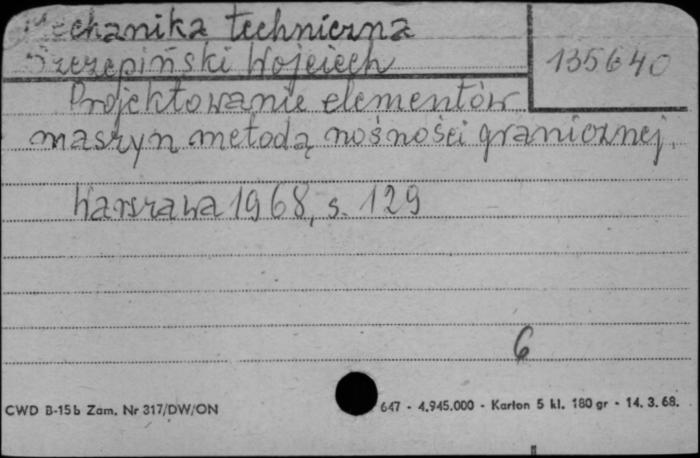 Mechanika techniczna
Szczepiński Wojciech
135640
Projektowanie elementów
maszyn metodą nośności granicznej.
Warszawa 1968, s. 129
6
CWD B-15b Zam. Nr 317/DW/ON
647 - 4.945.000 - Karton 5 kl. 180 gr - 14. 3. 68.